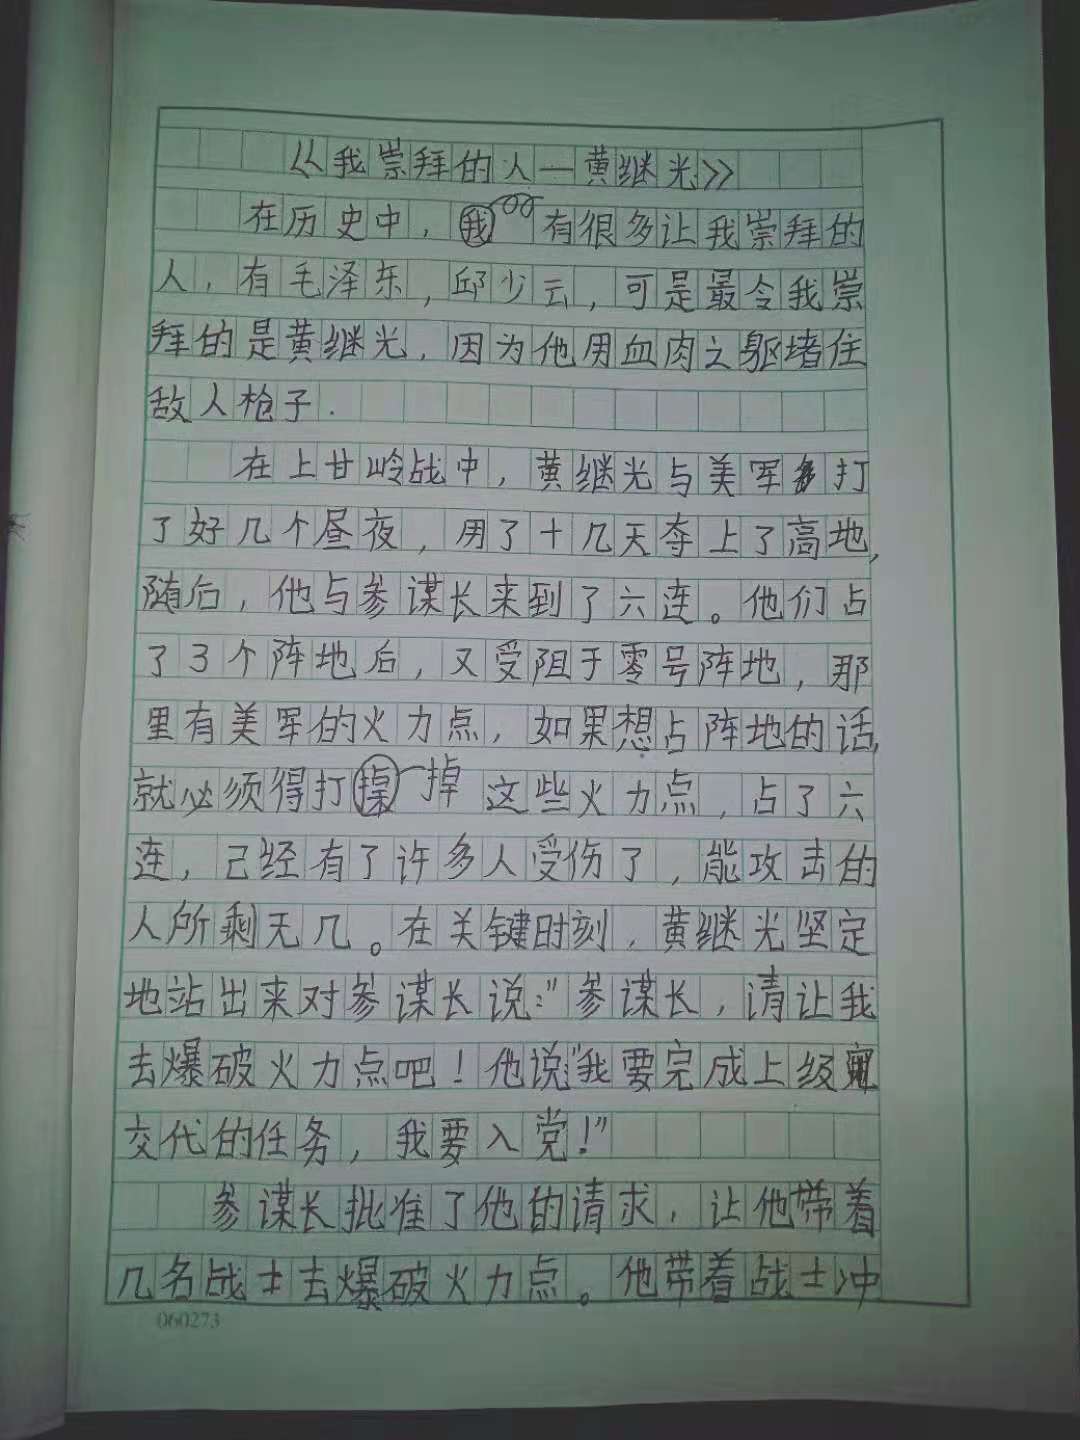 《我崇拜的人—黄继光》
在历史中，有很多让我崇拜的
人，有毛泽东，邱少云，可是最令我崇
拜的是黄继光，因为他用血肉之躯堵住
敌人枪子.
在上甘岭战中，黄继光与美军打
了好几个昼夜，用了十几天夺上了高地，
随后，他与参谋长来到了六连。他们占
了3个阵地后，又受阻于零号阵地，那
里有美军的火力点，如果想占阵地的话，
就必须得打掉这些火力点，占了六
连，己经有了许多人受伤了，能攻击的
人所剩无几。在关键时刻，黄继光坚定
地站出来对参谋长说：“参谋长，请让我
去爆破火力点吧！他说“我要完成上级
交代的任务，我要入党！”
参谋长批准了他的请求，让他带着
几名战士去爆破火力点。他带着战士冲
060273